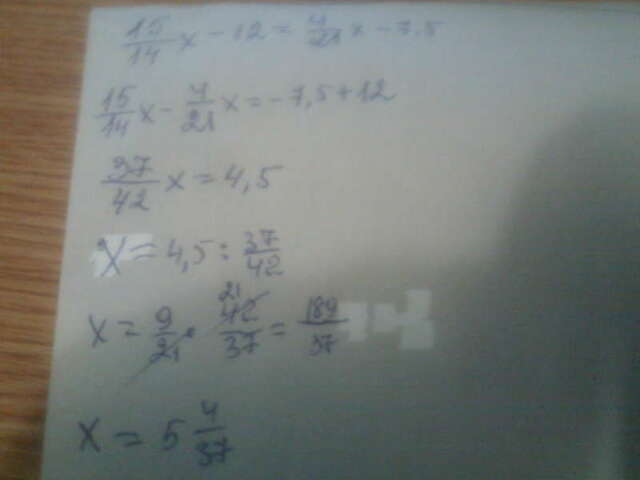 15/14 x - 12 = 4/21 x - 7,5
15/14 x - 4/21 x = -7,5 + 12
37/42 x = 4,5
x = 4,5 : 37/42
21
x = 9/2 1 · 42/37 = 189/37
x = 5 4/37